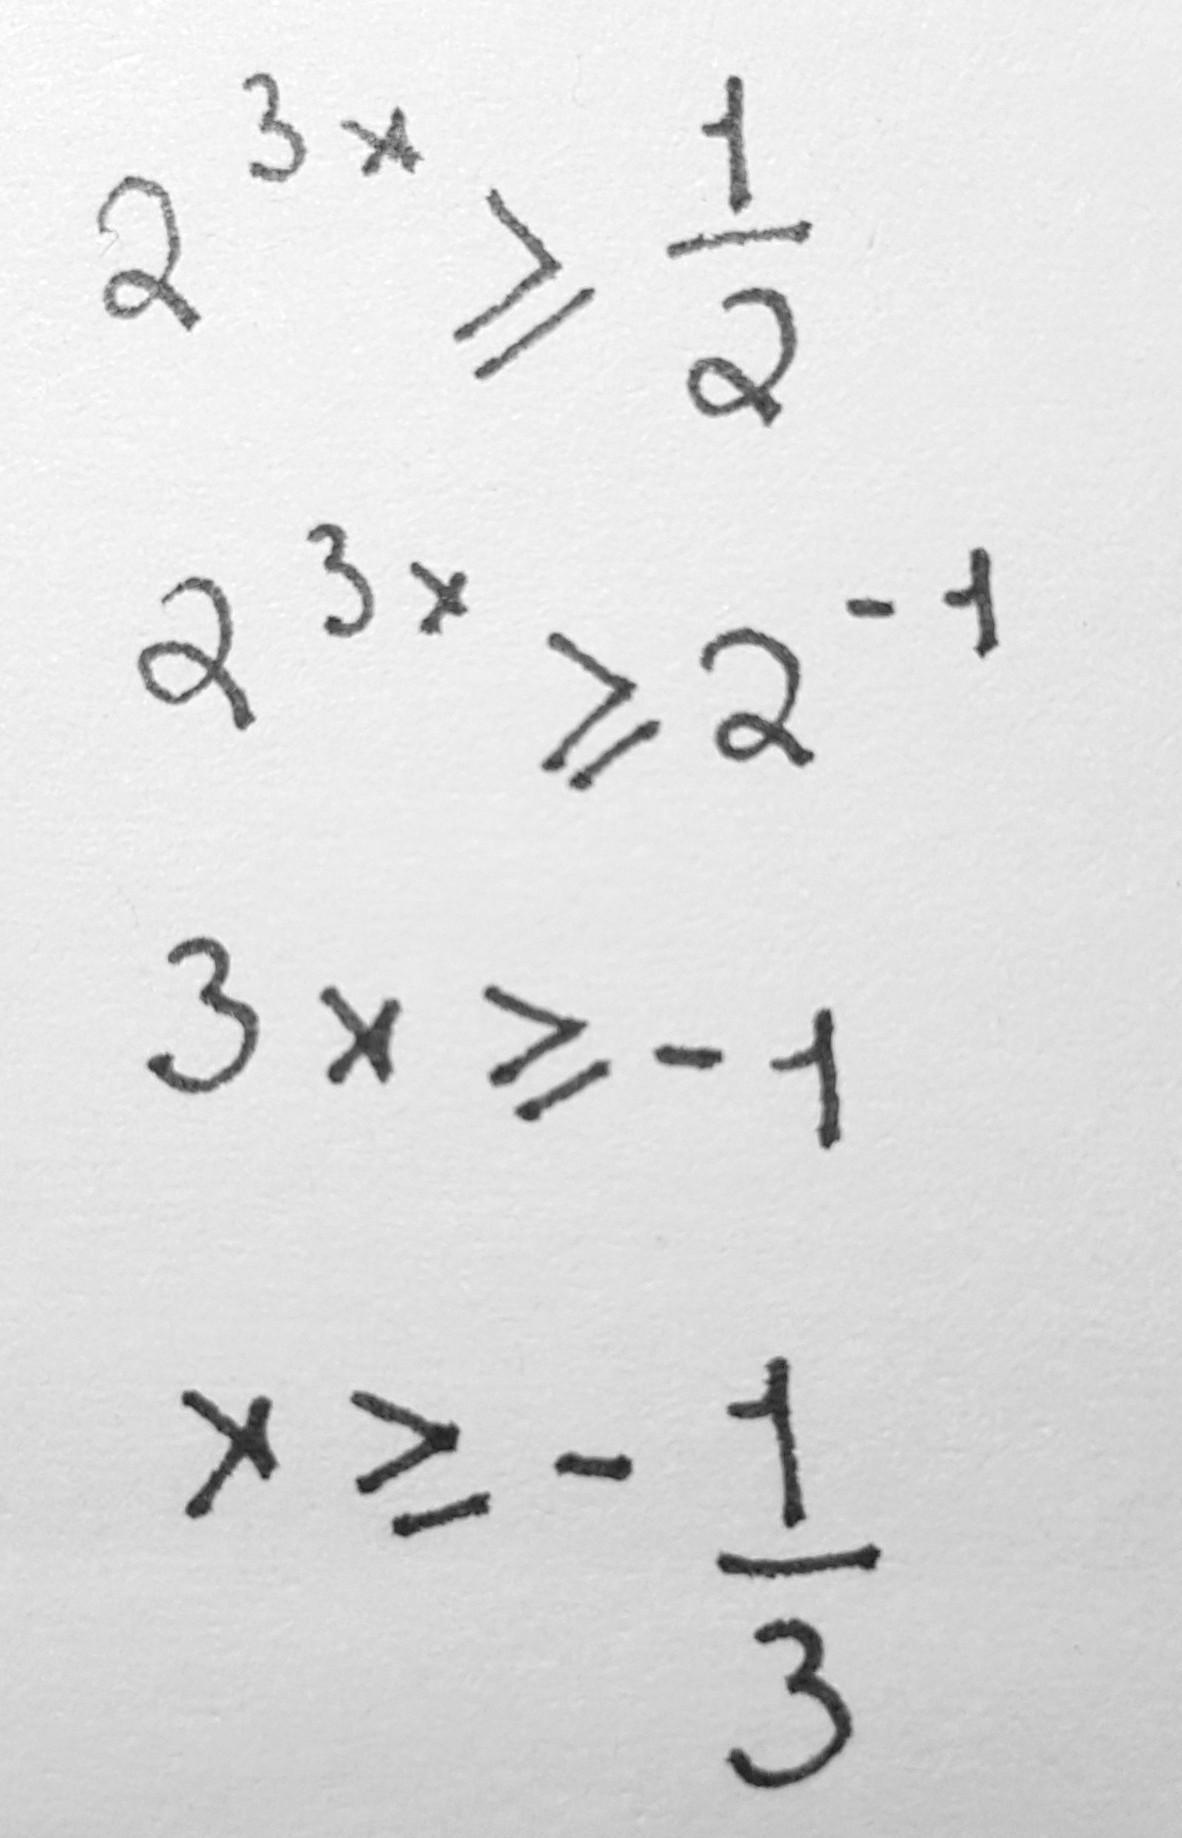 2^{3x} ⩾ \frac{1}{2}
2^{3x} ⩾ 2^{-1}
3x ⩾ -1
x ≥ -\frac{1}{3}